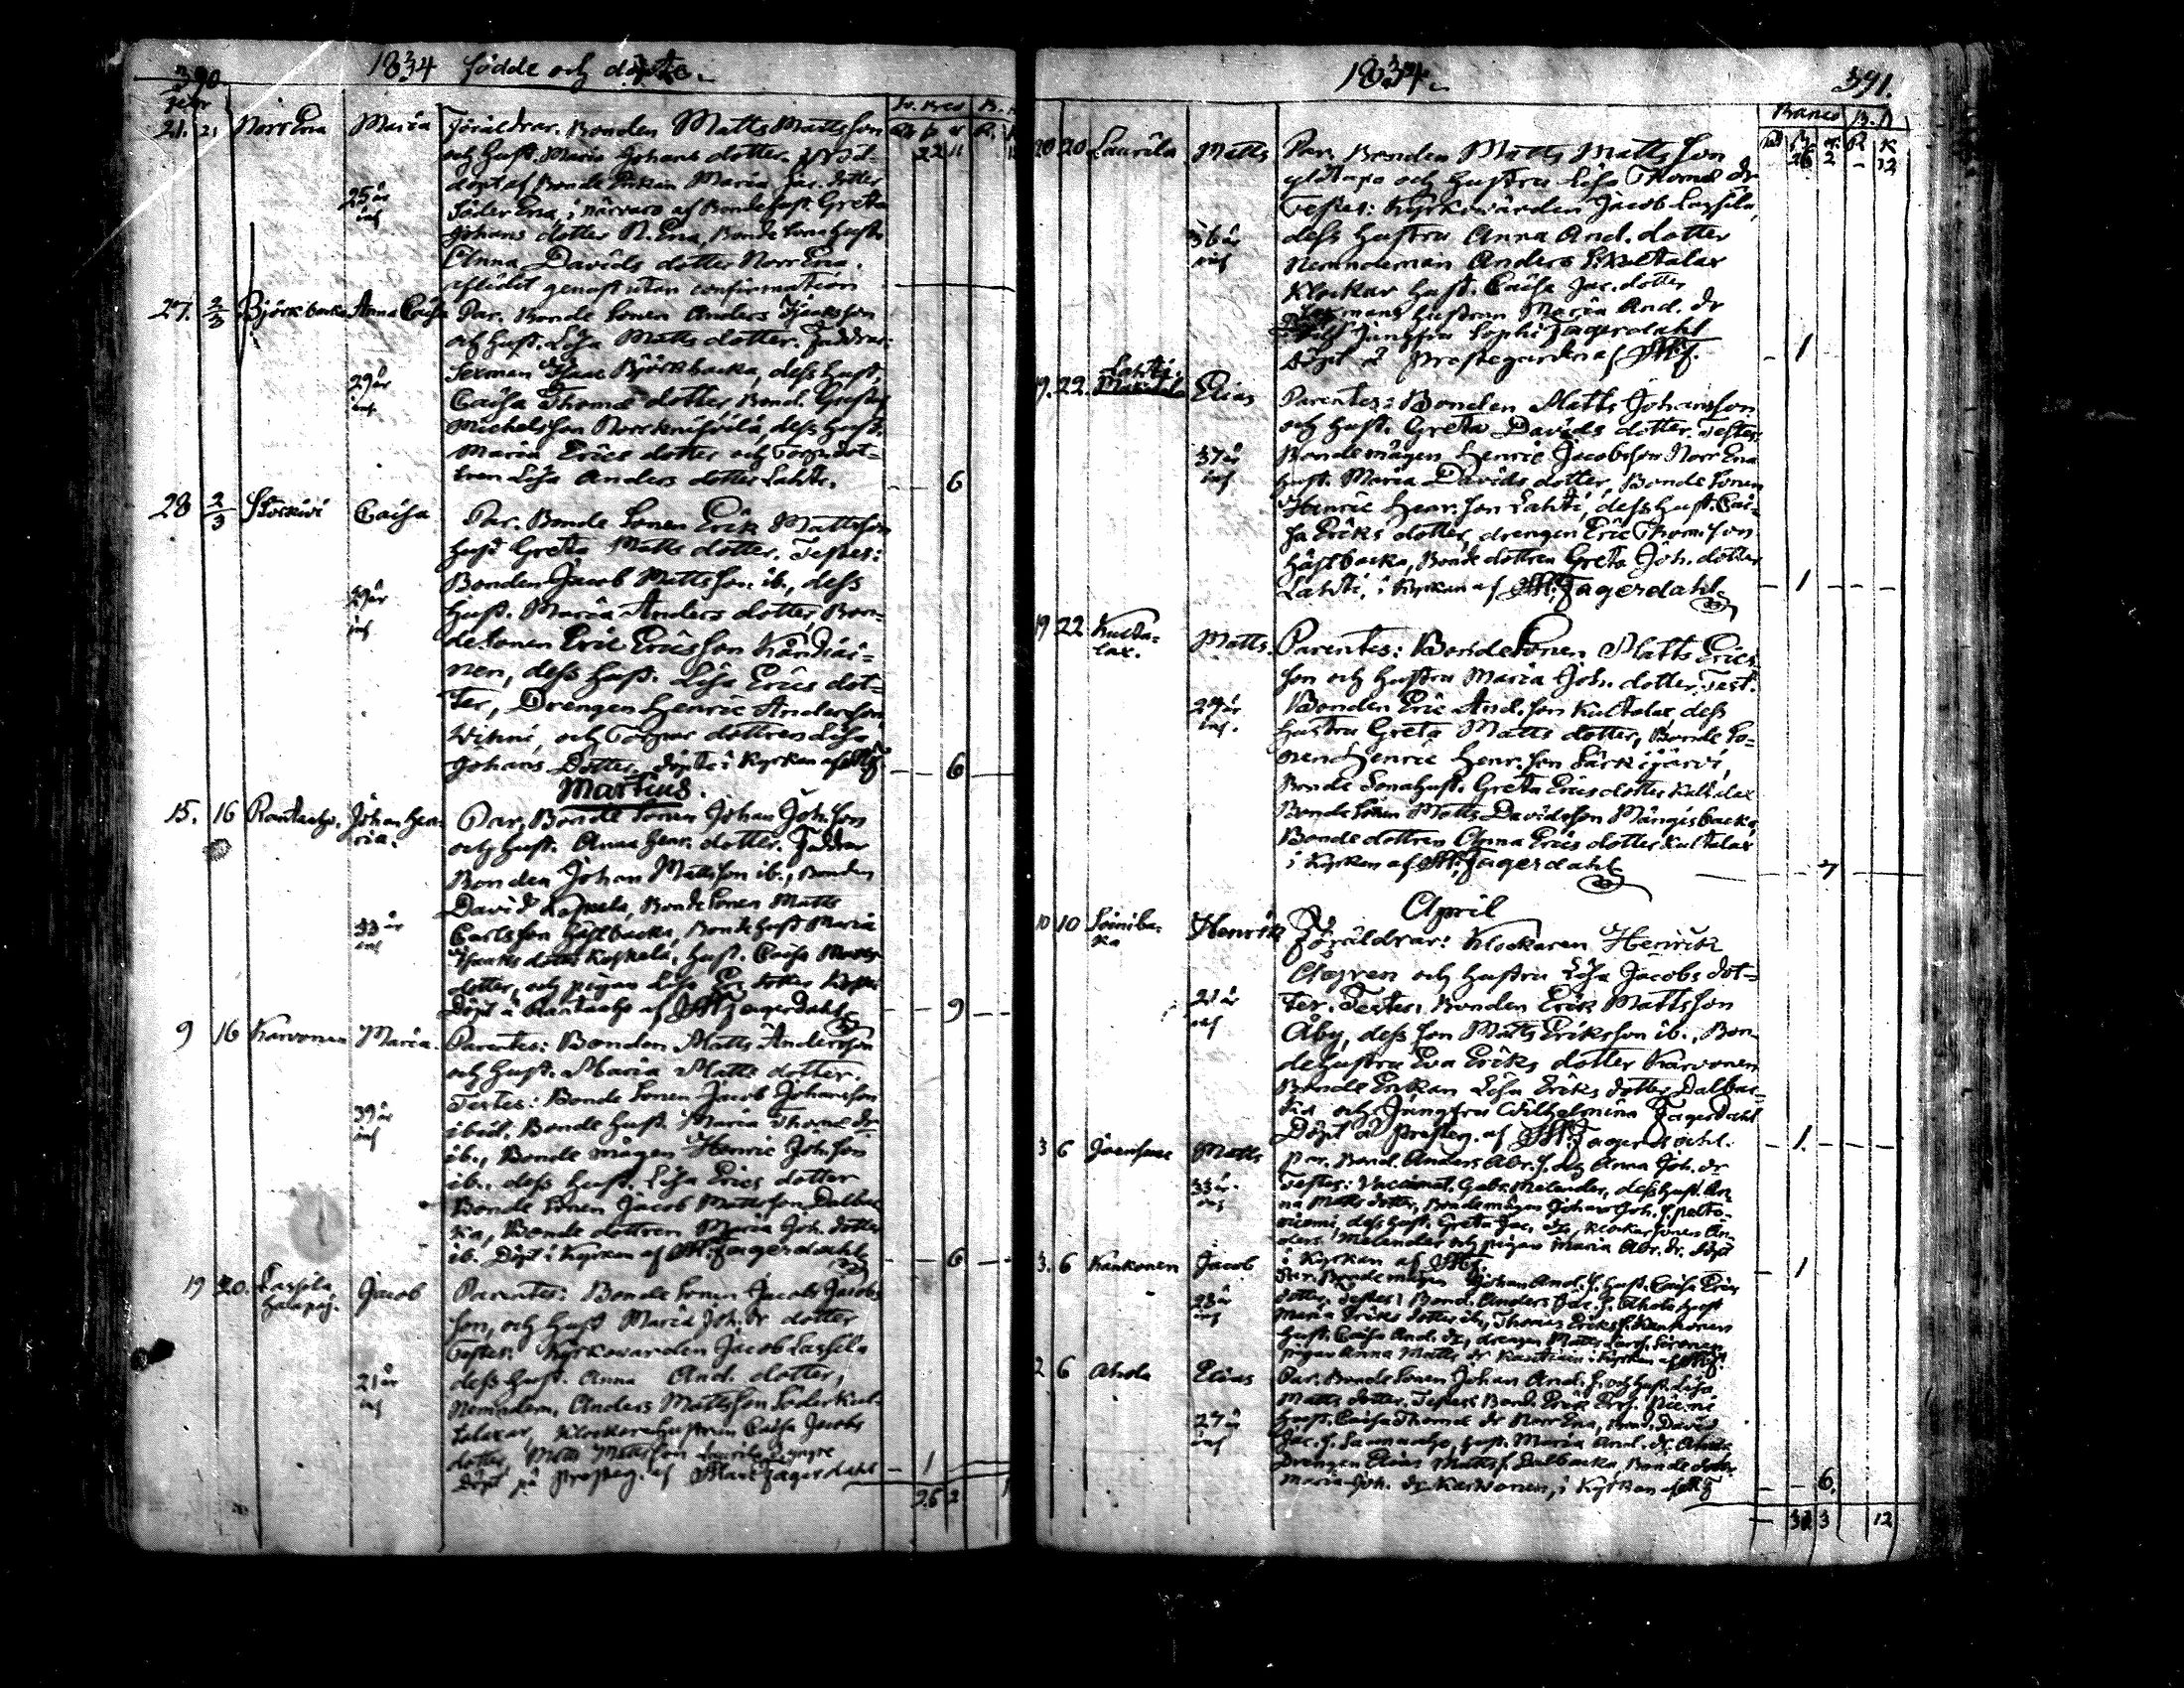 390
1834 födde och döpte.
Febr
21. 21 Norr Ena Maria Föräldrar. Bonden Matts Mattsson
och hust. Maria Johans dotter. Nöd-
döpt af Bonde Enkan Maria Jac. dotter
25 år Söder Ena, i närvaro af Bondehust. Greta
Johans dotter N. Ena, Bonde Sona hust.
Anna Davids dotter Norr Ena.
aflidit genast utan confirmation
27. 2/3 Björkbacka Anna Caisa Par. Bonde Sonen Anders Isaksson
och hust. Lisa Matts dotter. Faddrar:
Sexman Isaac Björkbacka, dess hust.
29 år Caisa Thomæ dotter, Bond. Gustaf
Michelsson, dess hust.
Maria Erics dotter och Torpardot-
tren Lisa Anders dotter Lahti. 6
28 2/3 Caisa Par. Bonde Sonen Erik Mattsson
hust Greta Matts dotter. Testes:
Bonden Jacob Mattsson ib., dess
29 år hust. Maria Anders dotter, Bon-
de sonen Eric Ericsson
nen, dess hust. Lisa Erics dot-
ter, Drengen Henric Andersson
och Torpar dottren Lisa
Johans Dotter, döpt i Kyrkan af MF 6
Martius.
15. 16 Johan Hen-
ric. Par. Bonde Sonen Johan Joh.son
och hust. Anna Henr. dotter. Faddrar
Bonden Johan Mattsson ib., Bonden
David Koskela, Bonde Sonen Matts
33 år Carlsson Hästbacka, Bonde hust Maria
Isaaks dotter Koskela, hust. Caisa Matts
dotter, och pigan Lisa Er. dotter
Döpt å af M Fagerdahl 9
9 16 Karvonen Maria. Parentes: Bonden Matts Andersson
och hust. Maria Matts dotter.
Testes: Bonde Sonen Jacob Johansson
39 år ibid. Bonde hust. Maria Thomæ dr
ib., Bonde mågen Henric Joh.son
ib., dess hust. Lisa Erics dotter
Bonde Sonen Jacob Mattsson Dalbac-
ka, Bonde dottren Maria Joh. dotter
ib. Döpt i Kyrkan af M. Fagerdahl 6
19 20. Lassila Jacob Parentes: Bonde Sonen Jacob Jacobs
son, och hust Maria Joh. dr dotter
Testes: Kyrkovärden Jacob Lassila
21 år dess hust. Anna And. dotter,
Nemndem. Anders Mattsson Söderkul-
talaxar, Klockarehustrun Caisa Jacobs
dotter, Matts Mattsson Laurila yngre
Döpt på Prosteg. af M Fagerdahl 1
26 2
1834.
391.
Banco
20 20 Laurila Matts Par. Bonden Matts Mattsson
och hustru Lisa Thomæ dr
Testes: Kyrkovärden Jacob Lassila,
36 år dess hustru Anna And. dotter
Nemndeman Anders S. Kultalax
Klockar hust. Caisa Jac. dotter
Sexmans hustrun Maria And. dr
Jungfru Sophi Fagerdahl
Döpt å Prostegården af MF. 1
19. 22. Lahti. Elias Parentes: Bonden Matts Johansson
och hust. Greta Davids dotter. Testes:
37 år Bondemågen Henric Jacobsson Norr Ena
hust. Maria Davids dotter, Bonde Sonen
Henric Henr.son Lahti, dess hust. Cai-
sa Eriks dotter, drengen Eric Thom.son
Hästbacka, Bonde dottren Greta Joh. dotter
Lahti, i Kyrkan af M. Fagerdahl 1
19 22 Kulta-
lax. Matts. Parentes: Bonde Sonen Matts Erics-
son och hustru Maria Joh. dotter. Test.
29 år Bonden Eric And.son Kultalax, dess
hustru Greta Matts dotter, Bonde So-
nen Henric Henr.son Särkijärvi,
Bonde Sonahust. Greta Erics dotter Kultalax
Bonde Sonen Matts Davidsson Mångisbacka,
Bonde dottren Anna Erics dotter Kultalax
i Kyrkan af M. Fagerdahl 7
April
10 10 Soiniba-
ka Henrik Föräldrar: Klockaren Henrik
Ahgren och hustru Lisa Jacobs dot-
21 år ter. Testes: Bonden Erik Mattsson
Åby, dess son Matts Eriksson ib., Bon-
dehustru Eva Eriks dotter Karvonen
Bonde Enkan Lisa Eriks dotter Dalbac-
ka och Jungfru Wilhelmina Fagerdahl
Döpt å Prosteg. af M. Fagerdahl. 1.
3 6 Joensuu Matts Par. Bond. Anders Abr. s. och Anna Joh. dr
33 år Testes: Vaccinat. Gabr. Melander, dess hust. An-
na Matts dotter, Bondemågen Johan Joh. s. Pelto-
niemi, dess hust. Greta Jac. dr, Klockar sonen An-
ders Melander och pigan Maria Abr. dr. döpt
i Kyrkan af MF. 1
3. 6 Kankonen Jacob Par. Bondemågen Johan And. s. hust. Caisa Erics
dotter. Testes: Bond. Anders Jac. s. Ahola hust
28 år Maria Eriks dotter ib., Thomas Eriks s. Kankonen
hust. Caisa And. dr, drengen Matts
pigan Anna Matts dr i Kyrkan af MF
2 6 Ahola Elias Par. Bonde Sonen Johan And. s. och hust. Lisa
Matts dotter. Testes: Bond. Erik Er.s.
27 år hust. Caisa Thomæ dr Norr Ena, Bond. David
Jac. s., hust. Maria And. dr Ahola
Drengen Elias Matts s. Dalbacka, Bonde dotter
Maria Joh. dr Karvonen, i Kyrkan af MF 6.
32 3 12